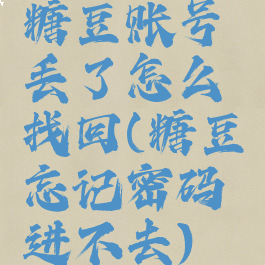 糖豆账号
丢了怎么
找回(糖豆
忘记密码
进不去)